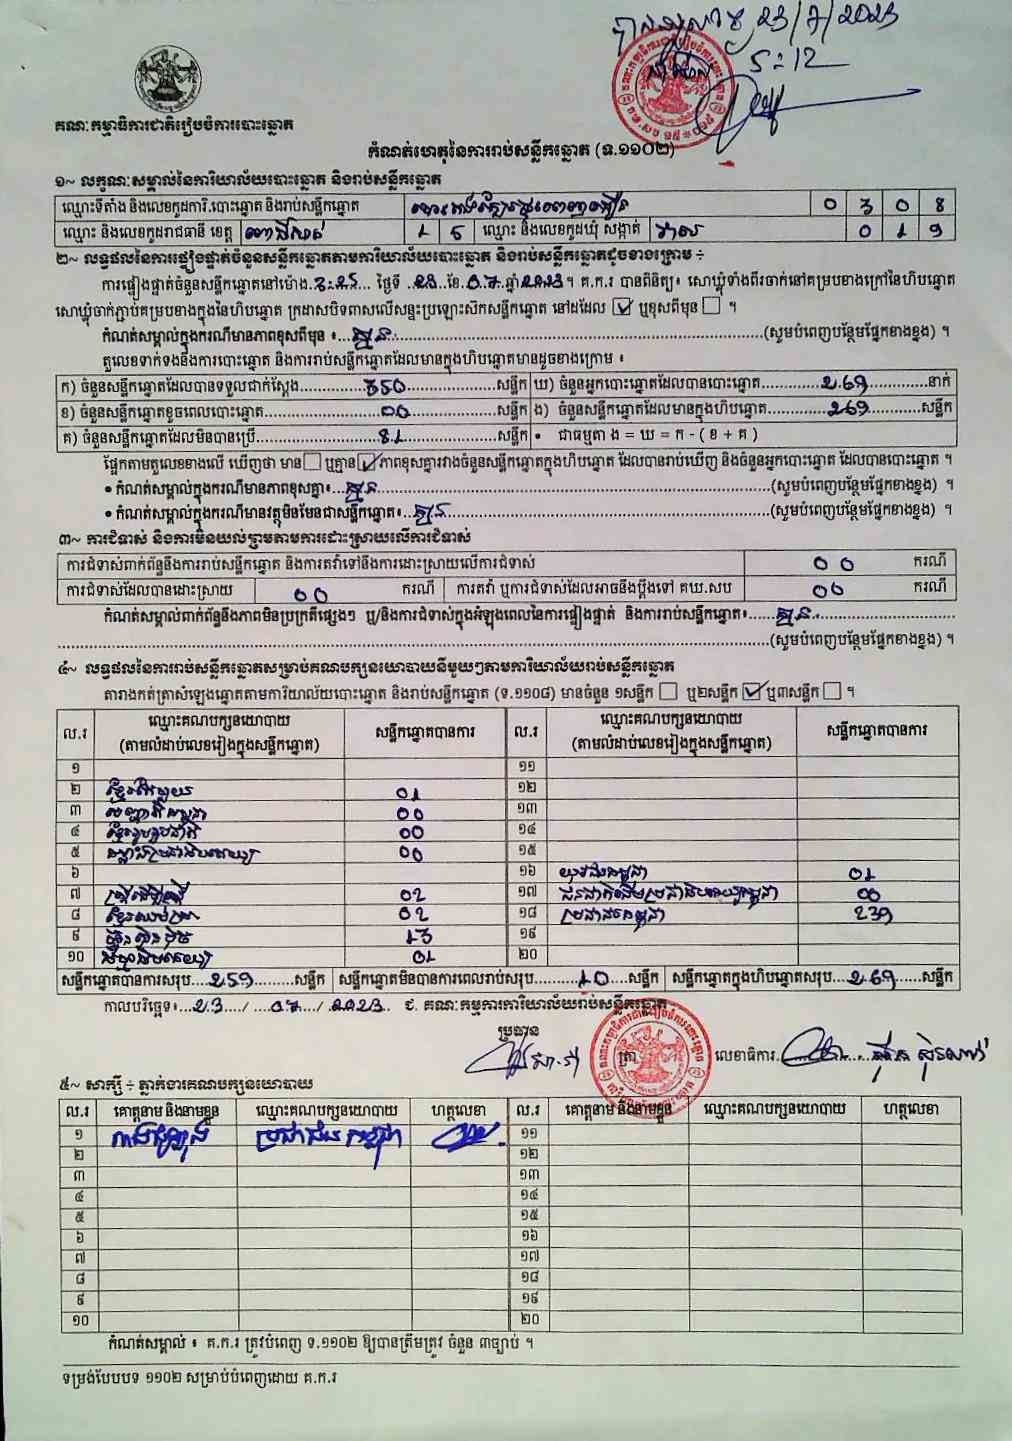 23/7/2023
5:12
គណៈកម្មាធិការជាតិរៀបចំការបោះឆ្នោត
កំណត់ហេតុនៃការរាប់សន្លឹកឆ្នោត (ទ.១១០២)
១~ លក្ខណៈសម្គាល់នៃការិយាល័យបោះឆ្នោត និងរាប់សន្លឹកឆ្នោត
ឈ្មោះទីតាំង និងលេខកូដការិ.បោះឆ្នោត និងរាប់សន្លឹកឆ្នោត 0 3 0 8
ឈ្មោះ និងលេខកូដរាជធានី ខេត្ត ពោធិ៍សាត់ 1 5 ឈ្មោះ និងលេខកូដឃុំ សង្កាត់ 0 1 9
២~ លទ្ធផលនៃការផ្ទៀងផ្ទាត់ចំនួនសន្លឹកឆ្នោតតាមការិយាល័យបោះឆ្នោត និងរាប់សន្លឹកឆ្នោតដូចខាងក្រោម ÷
ការផ្ទៀងផ្ទាត់ចំនួនសន្លឹកឆ្នោតនៅម៉ោង.3:25... ថ្ងៃទី ..23..ខែ.0.7..ឆ្នាំ.2023.។ គ.ក.រ បានពិនិត្យ៖ សោឃ្លុំទាំងពីរចាក់នៅគម្របខាងក្រៅនៃហិបឆ្នោត
សោឃ្លុំចាក់ភ្ជាប់គម្របខាងក្នុងនៃហិបឆ្នោត ក្រដាសបិទពាសលើសន្ទះប្រឡោះសិកសន្លឹកឆ្នោត នៅដដែល ☑ ឬខុសពីមុន ☐ ។
កំណត់សម្គាល់ក្នុងករណីមានភាពខុសពីមុន ៖...គ្មាន...(សូមបំពេញបន្ថែមផ្នែកខាងខ្នង) ។
តួលេខទាក់ទងនឹងការបោះឆ្នោត និងការរាប់សន្លឹកឆ្នោតដែលមានក្នុងហិបឆ្នោតមានដូចខាងក្រោម ៖
ក) ចំនួនសន្លឹកឆ្នោតដែលបានទទួលជាក់ស្តែង...350...សន្លឹក ឃ) ចំនួនអ្នកបោះឆ្នោតដែលបានបោះឆ្នោត...269...នាក់
ខ) ចំនួនសន្លឹកឆ្នោតខូចពេលបោះឆ្នោត...00...សន្លឹក ង) ចំនួនសន្លឹកឆ្នោតដែលមានក្នុងហិបឆ្នោត...269...សន្លឹក
គ) ចំនួនសន្លឹកឆ្នោតដែលមិនបានប្រើ...81...សន្លឹក • ជាធម្មតា ង = ឃ = ក - ( ខ + គ )
ផ្អែកតាមតួលេខខាងលើ ឃើញថា មាន ☐ ឬគ្មាន ☑ ភាពខុសគ្នារវាងចំនួនសន្លឹកឆ្នោតក្នុងហិបឆ្នោត ដែលបានរាប់ឃើញ និងចំនួនអ្នកបោះឆ្នោត ដែលបានបោះឆ្នោត ។
• កំណត់សម្គាល់ក្នុងករណីមានភាពខុសគ្នា៖...គ្មាន...(សូមបំពេញបន្ថែមផ្នែកខាងខ្នង) ។
• កំណត់សម្គាល់ក្នុងករណីមានវត្ថុមិនមែនជាសន្លឹកឆ្នោត៖...គ្មាន...(សូមបំពេញបន្ថែមផ្នែកខាងខ្នង) ។
៣~ ការជំទាស់ និងការមិនយល់ព្រមតាមការដោះស្រាយលើការជំទាស់
ការជំទាស់ពាក់ព័ន្ធនឹងការរាប់សន្លឹកឆ្នោត និងការតវ៉ាទៅនឹងការដោះស្រាយលើការជំទាស់ 00 ករណី
ការជំទាស់ដែលបានដោះស្រាយ 00 ករណី ការតវ៉ា ឬការជំទាស់ដែលអាចនឹងប្តឹងទៅ គឃ.សប 00 ករណី
កំណត់សម្គាល់ពាក់ព័ន្ធនឹងភាពមិនប្រក្រតីផ្សេងៗ ឬ/និងការជំទាស់ក្នុងអំឡុងពេលនៃការផ្ទៀងផ្ទាត់ និងការរាប់សន្លឹកឆ្នោត៖...គ្មាន...
...(សូមបំពេញបន្ថែមផ្នែកខាងខ្នង) ។
៤~ លទ្ធផលនៃការរាប់សន្លឹកឆ្នោតសម្រាប់គណបក្សនយោបាយនីមួយៗតាមការិយាល័យរាប់សន្លឹកឆ្នោត
តារាងកត់ត្រាសំឡេងឆ្នោតតាមការិយាល័យបោះឆ្នោត និងរាប់សន្លឹកឆ្នោត (ទ.១១០៨) មានចំនួន ១សន្លឹក ☐ ឬ២សន្លឹក ☑ ឬ៣សន្លឹក ☐ ។
ល.រ ឈ្មោះគណបក្សនយោបាយ (តាមលំដាប់លេខរៀងក្នុងសន្លឹកឆ្នោត) សន្លឹកឆ្នោតបានការ ល.រ ឈ្មោះគណបក្សនយោបាយ (តាមលំដាប់លេខរៀងក្នុងសន្លឹកឆ្នោត) សន្លឹកឆ្នោតបានការ
១ ១១
២ ខ្មែរតែមួយ 01 ១២
៣ សញ្ជាតិកម្ពុជា 00 ១៣
៤ ខ្មែររួបរួមជាតិ 00 ១៤
៥ កម្លាំងប្រជាធិបតេយ្យ 00 ១៥
៦ ១៦ យុវជនកម្ពុជា 01
៧ 02 ១៧ ជនជាតិដើមប្រជាធិបតេយ្យកម្ពុជា 00
៨ 02 ១៨ ប្រជាជនកម្ពុជា 239
៩ ហ៊្វុនស៊ិនប៉ិច 13 ១៩
១០ 01 ២០
សន្លឹកឆ្នោតបានការសរុប...259...សន្លឹក សន្លឹកឆ្នោតមិនបានការពេលរាប់សរុប...10...សន្លឹក សន្លឹកឆ្នោតក្នុងហិបឆ្នោតសរុប...269...សន្លឹក
កាលបរិច្ឆេទ៖...23.../...07.../ 2023.. ជ. គណៈកម្មការការិយាល័យរាប់សន្លឹកឆ្នោត
ប្រធាន
ត្រា លេខាធិការ
៥~ សាក្សី ÷ ភ្នាក់ងារគណបក្សនយោបាយ
ល.រ គោត្តនាម និងនាមខ្លួន ឈ្មោះគណបក្សនយោបាយ ហត្ថលេខា ល.រ គោត្តនាម និងនាមខ្លួន ឈ្មោះគណបក្សនយោបាយ ហត្ថលេខា
១ ប្រជាជន កម្ពុជា ១១
២ ១២
៣ ១៣
៤ ១៤
៥ ១៥
៦ ១៦
៧ ១៧
៨ ១៨
៩ ១៩
១០ ២០
កំណត់សម្គាល់ ៖ គ.ក.រ ត្រូវបំពេញ ទ.១១០២ ឱ្យបានត្រឹមត្រូវ ចំនួន ៣ច្បាប់ ។
ទម្រង់បែបបទ ១១០២ សម្រាប់បំពេញដោយ គ.ក.រ